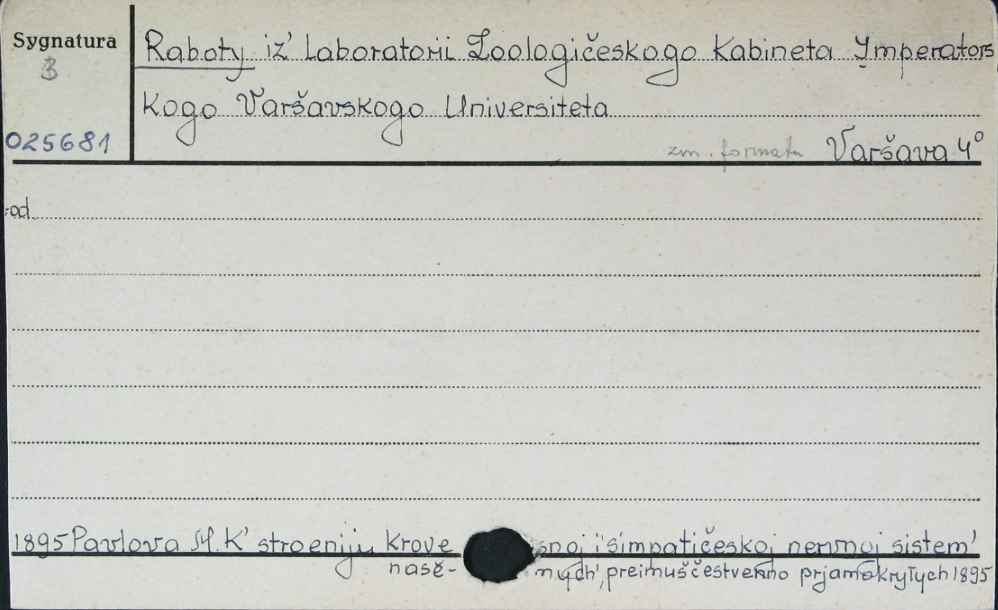 Sygnatura
3
025681
Raboty iz' Laboratorii Zoologičeskogo Kabineta Imperators
kogo Varšavskogo Universiteta
zm. formatu Varšava 4°
od
1895 Pavlova M. K' stroeniju krove snoj i simpatičeskoj nervnoj sistem'
nase- mych', preimuščestvenno prjamokryłych 1895